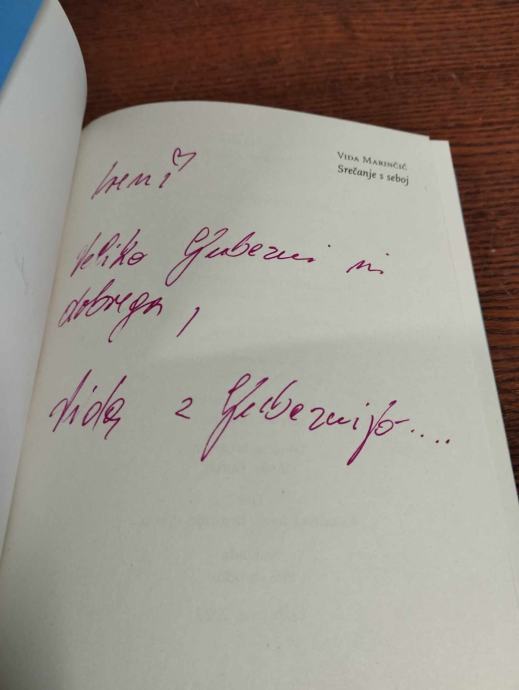 Vida Marinčič
Srečanje s seboj
Ireni
Veliko ljubezni in
dobrega,
Vida z ljubeznijo....